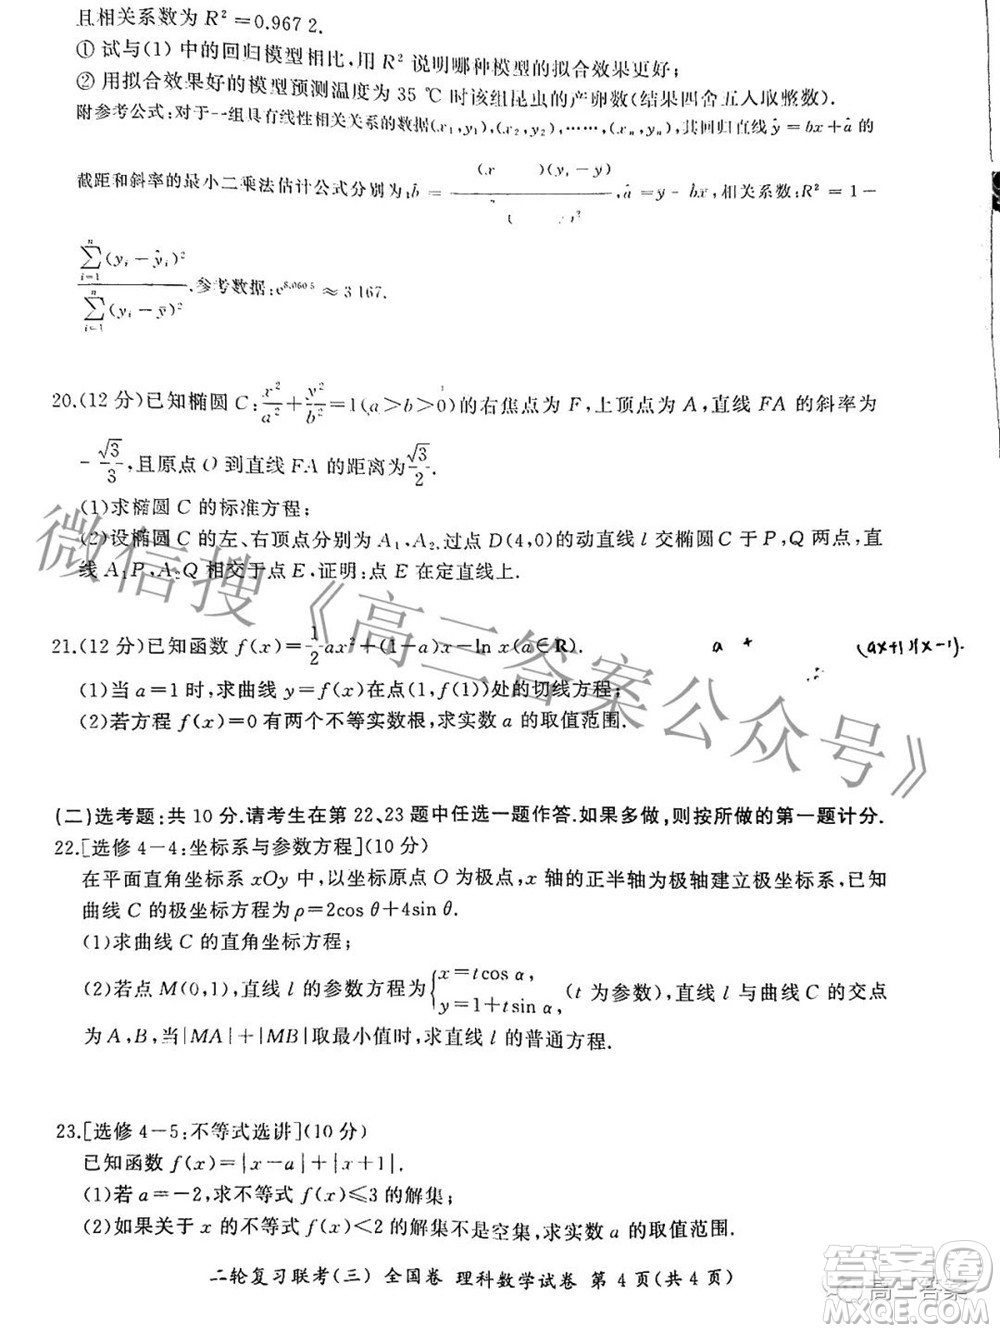 且相关系数为 R²=0.967 2.
①试与(1)中的回归模型相比,用 R² 说明哪种模型的拟合效果更好;
②用拟合效果好的模型预测温度为 35 ℃时该组昆虫的产卵数(结果四舍五入取整数).
附参考公式:对于一组具有线性相关关系的数据(x₁,y₁),(x₂,y₂),……,(xₙ,yₙ),其回归直线ŷ=bx+â的
截距和斜率的最小二乘法估计公式分别为:b̂= (x )(yᵢ-y) ,â=y-bx,相关系数:R²=1-
∑ⁿᵢ₌₁(yᵢ-ŷᵢ)²/∑ⁿᵢ₌₁(yᵢ-ȳ)².参考数据:e^8.060 5≈3 167.
20.(12 分)已知椭圆 C:x²/a²+y²/b²=1(a>b>0)的右焦点为 F,上顶点为 A,直线 FA 的斜率为
-√3/3,且原点 O 到直线 FA 的距离为√3/2.
(1)求椭圆 C 的标准方程;
(2)设椭圆 C 的左、右顶点分别为 A₁,A₂,过点 D(4,0)的动直线 l 交椭圆 C 于 P,Q 两点,直
线 A₁P,A₂Q 相交于点 E,证明:点 E 在定直线上.
21.(12 分)已知函数 f(x)=1/2ax²+(1-a)x-ln x(a∈R).
a + (ax+1)(x-1).
(1)当 a=1 时,求曲线 y=f(x)在点(1,f(1))处的切线方程;
(2)若方程 f(x)=0 有两个不等实数根,求实数 a 的取值范围.
(二)选考题:共 10 分.请考生在第 22、23 题中任选一题作答.如果多做,则按所做的第一题计分.
22.[选修 4-4:坐标系与参数方程](10 分)
在平面直角坐标系 xOy 中,以坐标原点 O 为极点,x 轴的正半轴为极轴建立极坐标系,已知
曲线 C 的极坐标方程为 ρ=2cos θ+4sin θ.
(1)求曲线 C 的直角坐标方程;
(2)若点 M(0,1),直线 l 的参数方程为{x=tcos α, y=1+tsin α, (t 为参数),直线 l 与曲线 C 的交点
为 A,B,当|MA|+|MB|取最小值时,求直线 l 的普通方程.
23.[选修 4-5:不等式选讲](10 分)
已知函数 f(x)=|x-a|+|x+1|.
(1)若 a=-2,求不等式 f(x)≤3 的解集;
(2)如果关于 x 的不等式 f(x)<2 的解集不是空集,求实数 a 的取值范围.
二轮复习联考(三) 全国卷 理科数学试卷 第 4 页(共 4 页)
微信搜《高三答案公众号》
高三答案
答案圈
MXQE.COM